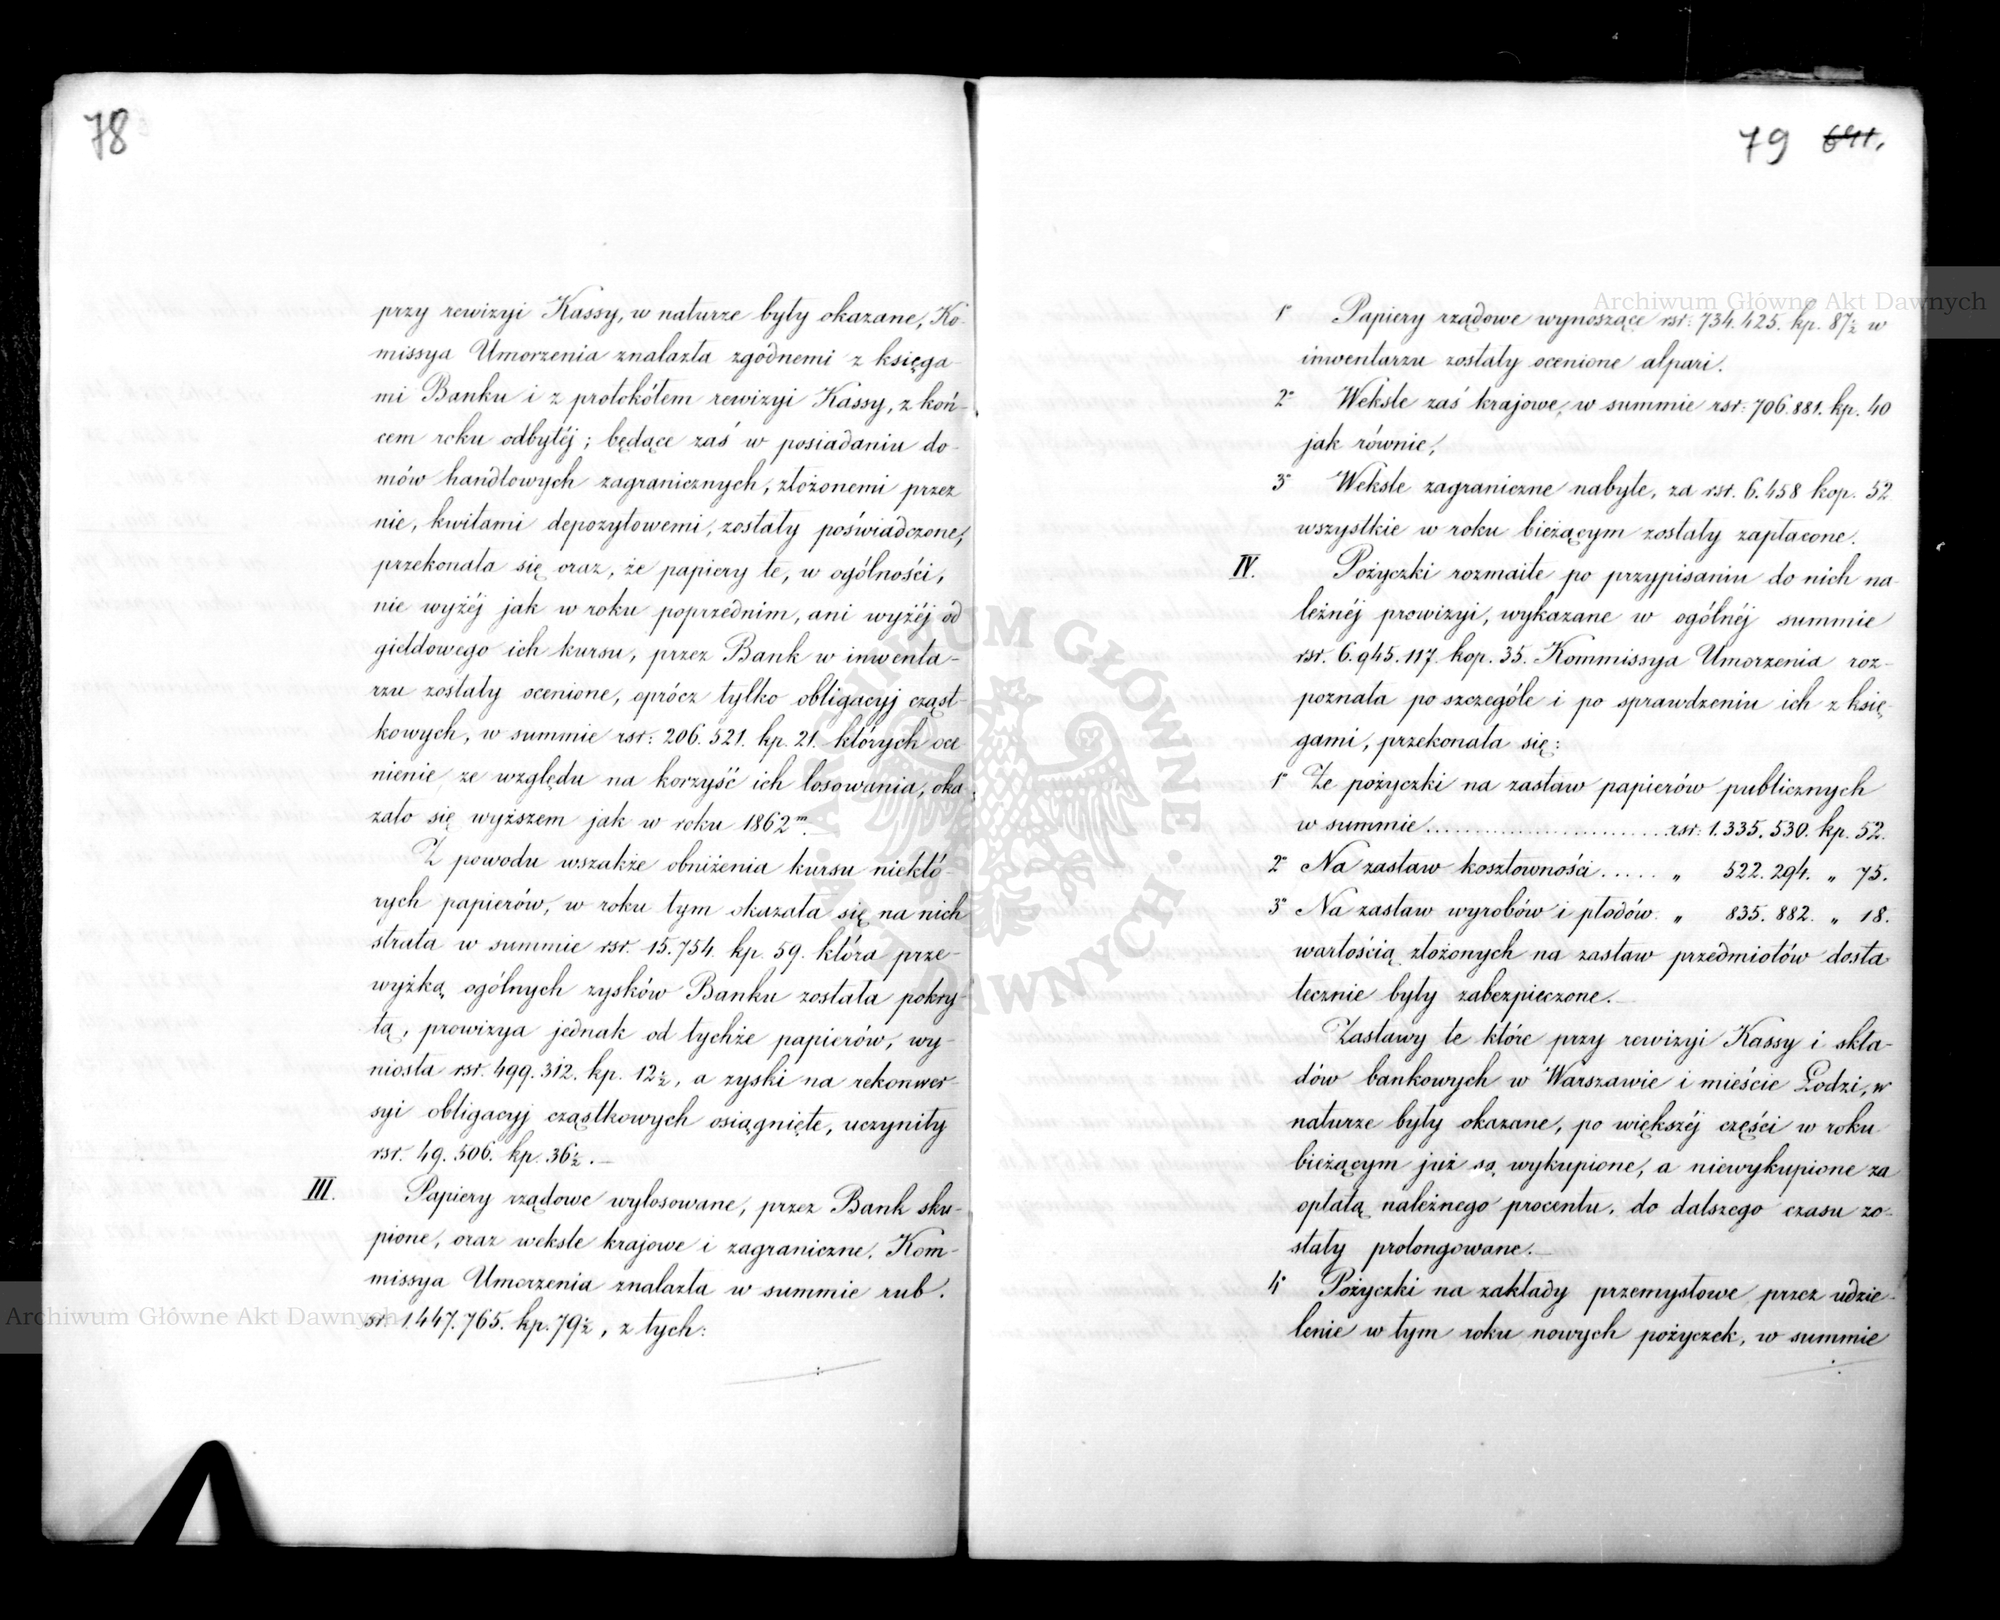 78
przy rewizyi Kassy, w naturze były okazane, Ko-
missya Umorzenia znalazła zgódnemi z księga-
mi Banku i z protokółem rewizyi Kassy, z koń-
cem roku odbytéj; będące zaś w posiadaniu do-
mów handlowych zagranicznych, złożonemi przez
nie, kwitami depozytowemi, zostały poświadczone;
przekonała się oraz, że papiery te, w ogólności,
nie wyżéj jak w roku poprzednim, ani wyżéj od
giełdowego ich kursu, przez Bank w inwenta-
rzu zostały ocenione, oprócz tylko obligacyj cząst-
kowych, w summie rsr: 206.521. kp. 21. których oce-
nienie ze względu na korzyść ich losowania, oka-
zało się wyższem jak w roku 1862m.
Z powodu wszakże obniżenia kursu niektó-
rych papierów, w roku tym okazała się na nich
strata w summie rsr. 15.754. kp. 59. która prze-
wyżką ogólnych zysków Banku została pokry-
tą, prowizya jednak od tychże papierów, wy-
niosła rsr. 499.312. kp. 12½, a zyski na rekonwer-
syi obligacyj cząstkowych osiągnięte, uczyniły
rsr. 49.506. kp. 36½.—
III. Papiery rządowe wylosowane, przez Bank sku-
pione, oraz weksle krajowe i zagraniczne. Kom-
missya Umorzenia znalazła w summie rub.
sr. 1.447.765. kp. 79½, z tych:
79
1o Papiery rządowe wynoszące rsr: 734.425. kp. 87½ w
inwentarzu zostały ocenione alpari.
2o Weksle zaś krajowe, w summie rsr: 706.881. kp. 40
jak równie,
3o Weksle zagraniczne nabyte, za rsr. 6.458 kop. 52
wszystkie w roku bieżącym zostały zapłacone.
IV. Pożyczki rozmaite po przypisaniu do nich na-
leżnéj prowizyi, wykazane w ogólnéj summie
rsr. 6.945.117. kop. 35. Kommissya Umorzenia roz-
poznała po szczególe i po sprawdzeniu ich z księ-
gami, przekonała się:
1o Że pożyczki na zastaw papierów publicznych
w summie........................rsr: 1.335.530. kp. 52.
2o Na zastaw kosztowności..... „ 522.294. „ 75.
3o Na zastaw wyrobów i płodów. „ 835.882. „ 18.
wartością złożonych na zastaw przedmiotów dosta
tecznie były zabezpieczone.—
Zastawy te które przy rewizyi Kassy i skła-
dów bankowych w Warszawie i mieście Łodzi, w
naturze były okazane, po większéj części w roku
bieżącym już są wykupione, a niewykupione za
opłatą należnego procentu, do dalszego czasu zo-
stały prolongowane.—
4o Pożyczki na zakłady przemysłowe przez udzie-
lenie w tym roku nowych pożyczek, w summie
Archiwum Główne Akt Dawnych
Archiwum Główne Akt Dawnych
ARCHIWUM GŁÓWNE AKT DAWNYCH